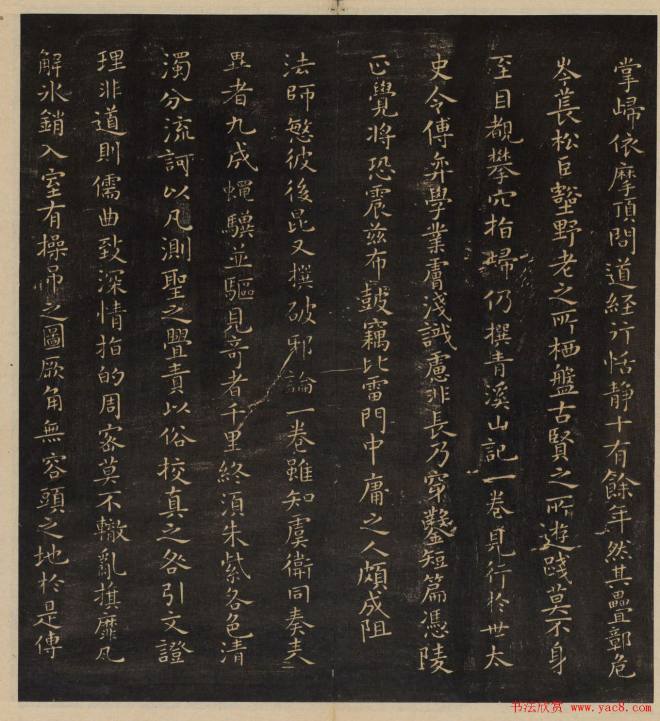 掌歸依摩頂問道經行恬靜十有餘年然其疊鄣危
岑萇松巨壑野老之所栖盤古賢之所遊踐莫不身
至目覩攀穴指歸仍撰青溪山記一卷見行於世太
史令傅弈學業膚淺識慮非長乃穿鑿短篇憑陵
正覺將恐震茲布皷竊比雷門中庸之人頗成阻
法師愍彼後昆又撰破邪論一卷雖知虞衛同奏夫
異者九成蠅驥並驅見奇者千里終須朱紫各色清
濁分流訶以凡測聖之舋責以俗挍真之咎引文證
理非道則儒曲致深情指的周密莫不轍亂旗靡瓦
解氷銷入室有操吊之圖厥角無容頭之地於是傳
书法欣赏 www.yac8.com